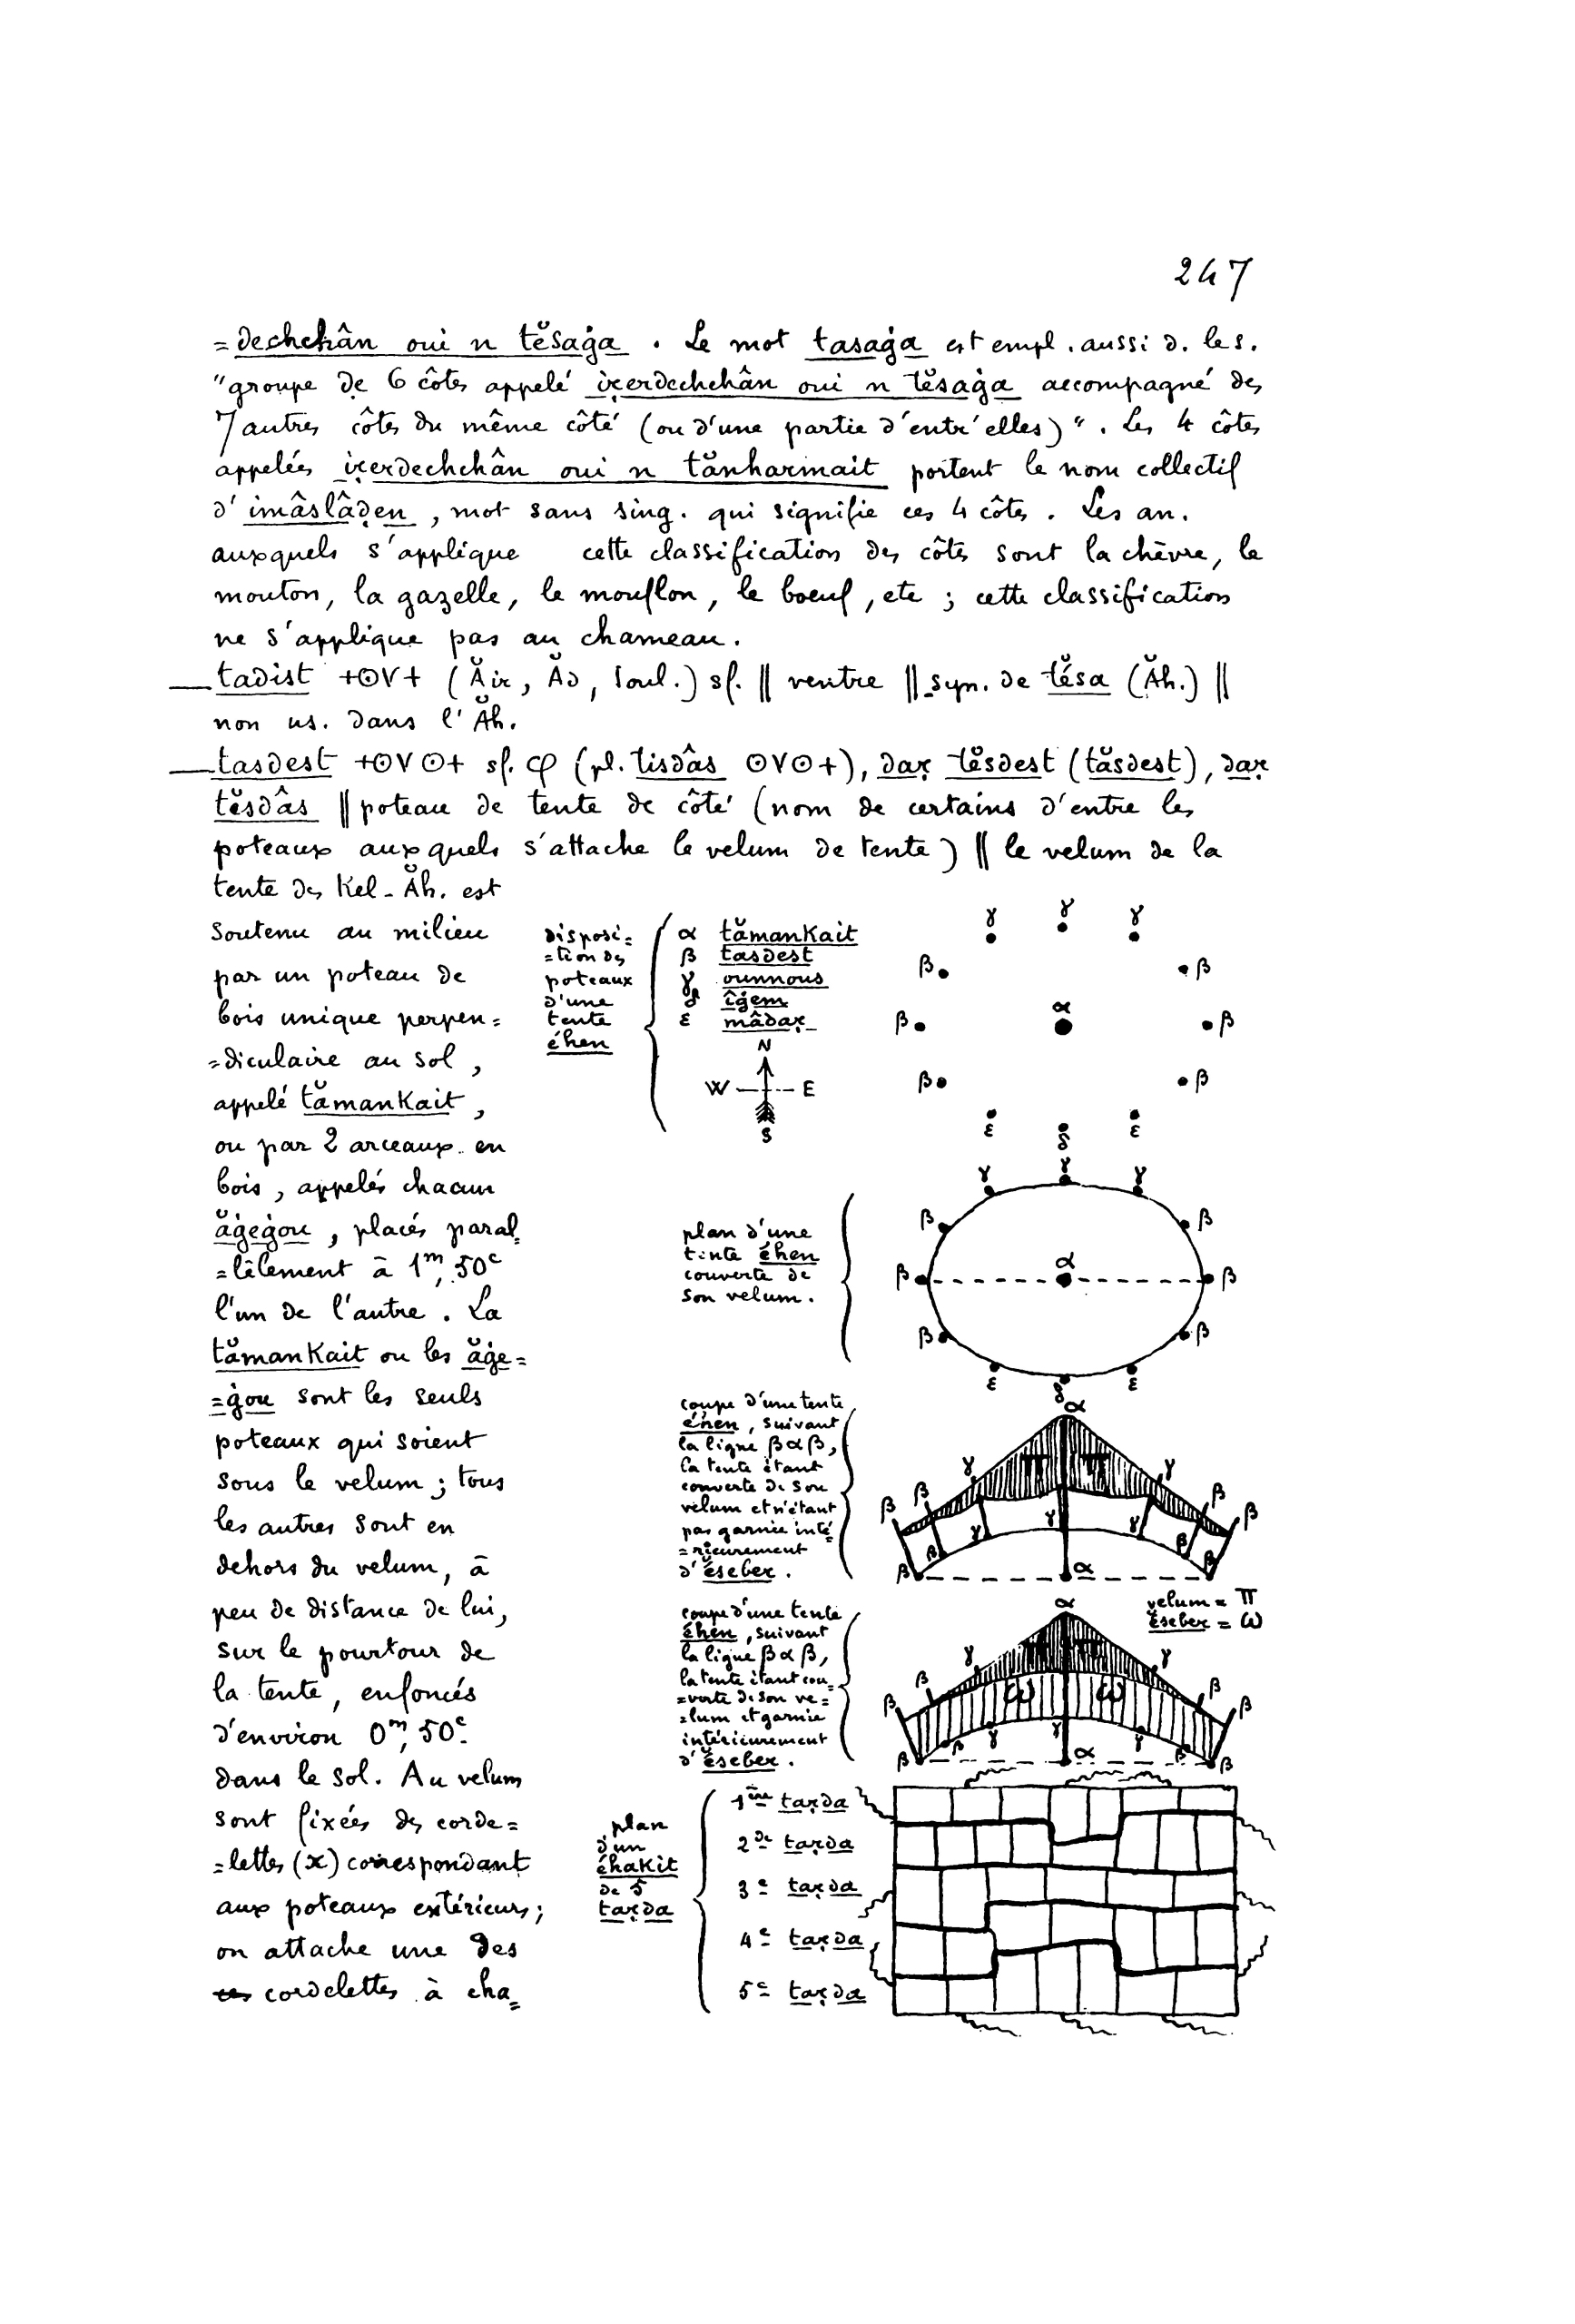 247
=dechchân oui n tĕsaġa . Le mot tasaġa est empl. aussi d. le s.
"groupe de 6 côtes appelé iṛerdechchân oui n tĕsaġa accompagné des
7 autres côtes du même côté (ou d'une partie d'entr'elles)" . Les 4 côtes
appelées iṛerdechchân oui n tănharmait portent le nom collectif
d'imâslâḍen , mot sans sing. qui signifie ces 4 côtes . Les an.
auxquels s'applique cette classification des côtes sont la chèvre, le
mouton, la gazelle, le mouflon, le boeuf, etc ; cette classification
ne s'applique pas au chameau.
— tadist +ⵙV+ (Ăir, Ăd, Ioul.) sf. || ventre || syn. de tĕ́sa (Ăh.) ||
non us. dans l'Ăh.
— tasdest +ⵙVⵙ+ sf. φ (pl. tisdâs ⵙVⵙ+), daṛ tĕsdest (tăsdest), daṛ
tĕsdâs || poteau de tente de côté (nom de certains d'entre les
poteaux auxquels s'attache le velum de tente) || le velum de la
tente des Kel-Ăh. est
soutenu au milieu
par un poteau de
bois unique perpen=
=diculaire au sol ,
appelé tămankait ,
ou par 2 arceaux en
bois , appelés chacun
ăġeġou , placés paral=
=lèlement à 1m, 50c
l'un de l'autre . La
tămankait ou les ăġe=
=ġou sont les seuls
poteaux qui soient
sous le velum ; tous
les autres sont en
dehors du velum, à
peu de distance de lui,
sur le pourtour de
la tente, enfoncés
d'environ 0m, 50c
dans le sol. Au velum
sont fixées des corde=
=lettes (x) correspondant
aux poteaux extérieurs ;
on attache une des
cordelettes à cha=
disposi=
=tion des
poteaux
d'une
tente
éhen
α tămankait
β tasdest
γ ounnous
δ îġem
ε mâdaṛ
N
W E
S
γ γ γ
β β
β α β
β β
ε δ ε
plan d'une
tente éhen
couverte de
son velum.
γ γ γ
β β
β α β
β β
ε δ ε
coupe d'une tente
éhen , suivant
la ligne β α β,
la tente étant
couverte de son
velum et n'étant
pas garnie inté=
=rieurement
d'ĕseber .
α
γ γ
π π
β β β β
γ γ γ
β β
β α β
velum = π
ĕseber = ω
coupe d'une tente
éhen , suivant
la ligne β α β,
la tente étant cou=
=verte de son ve=
=lum et garnie
intérieurement
d'ĕseber .
α
γ γ
π π
β β β β
ω ω
γ γ γ
β β
β α β
plan
d'un
éhakit
de 5
taṛda
1ère taṛda
2de taṛda
3e taṛda
4e taṛda
5e taṛda